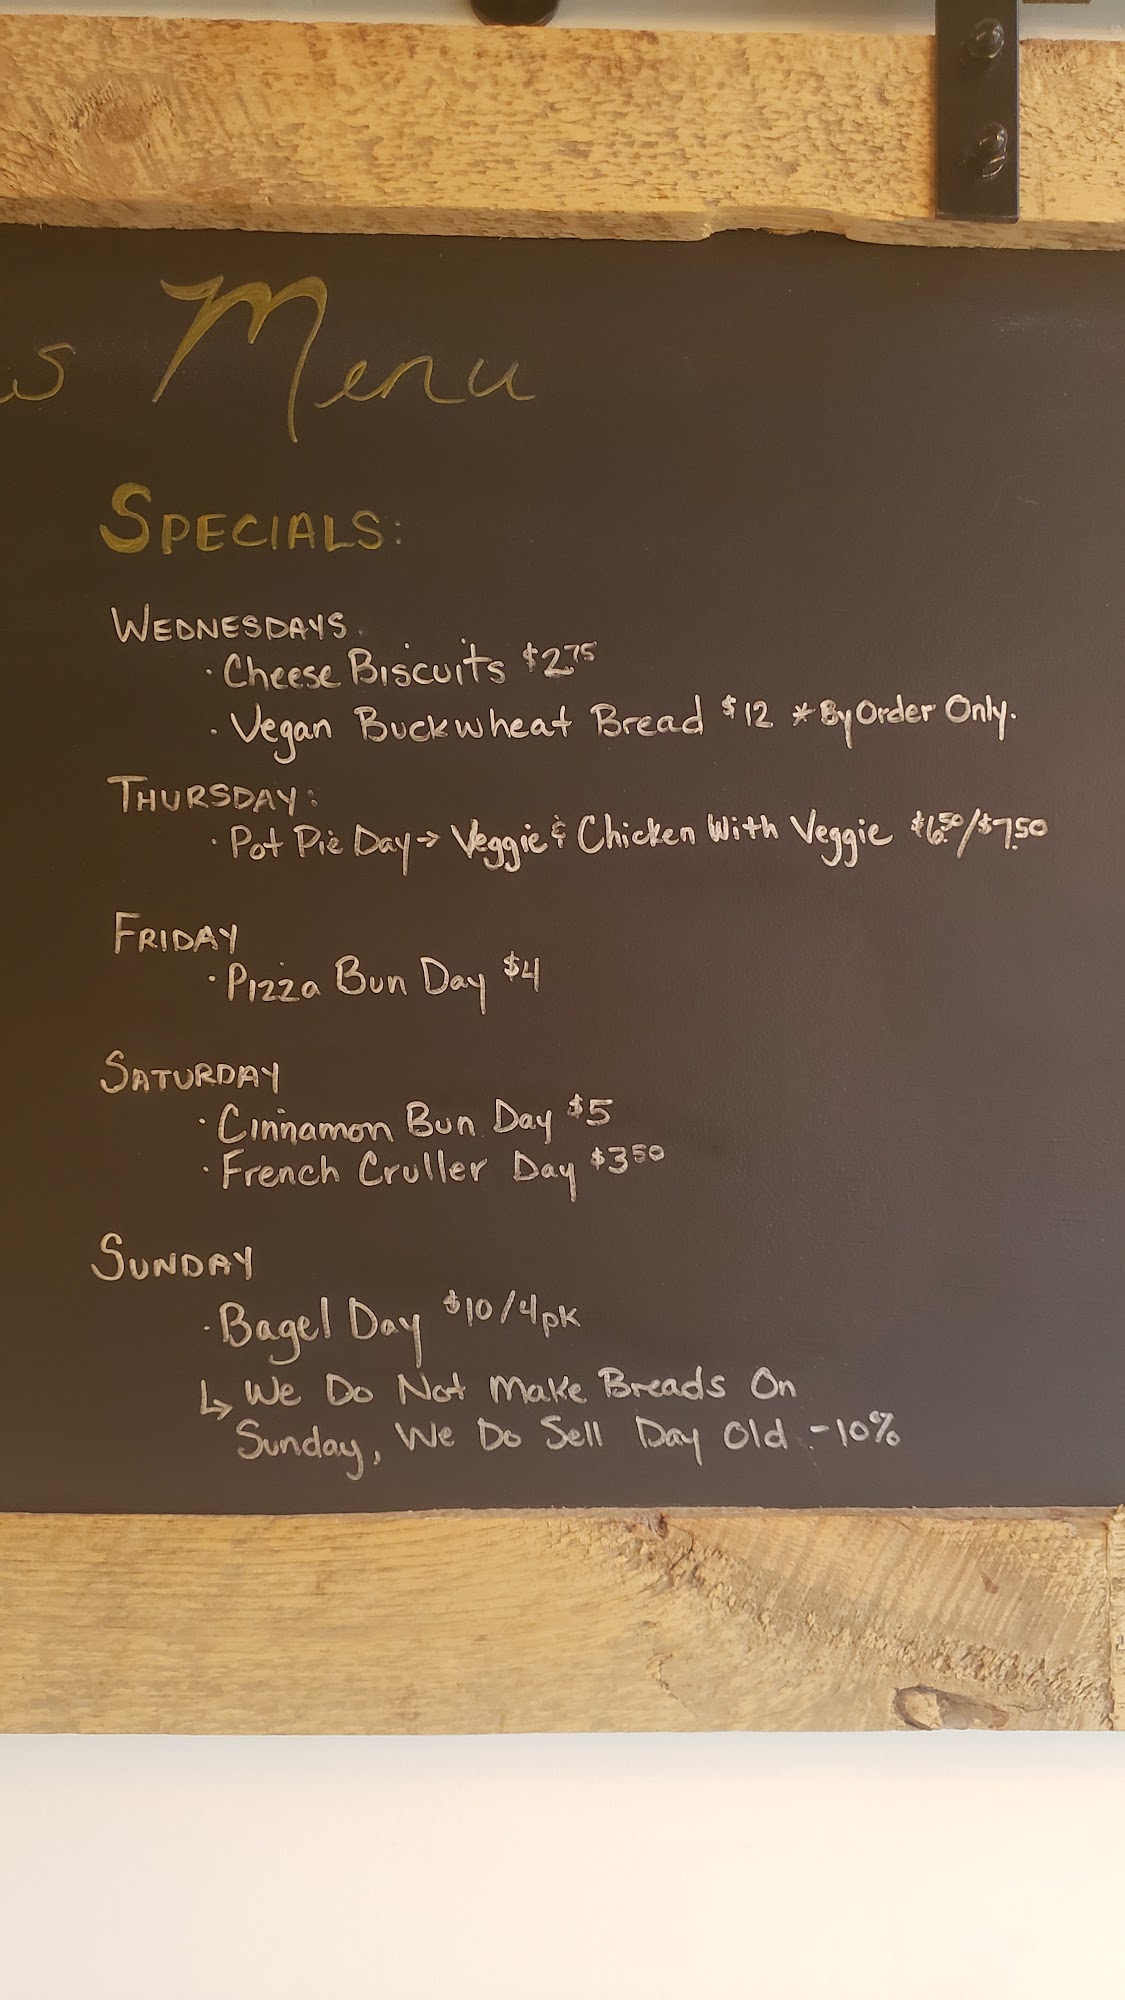 s Menu
SPECIALS:
WEDNESDAYS
· Cheese Biscuits $2.75
· Vegan Buckwheat Bread $12 *By Order Only.
THURSDAY:
· Pot Pie Day → Veggie & Chicken With Veggie $6.50/$7.50
FRIDAY
· Pizza Bun Day $4
SATURDAY
· Cinnamon Bun Day $5
· French Cruller Day $3.50
SUNDAY
· Bagel Day $10/4pk
↳ We Do Not Make Breads On
Sunday, We Do Sell Day Old -10%